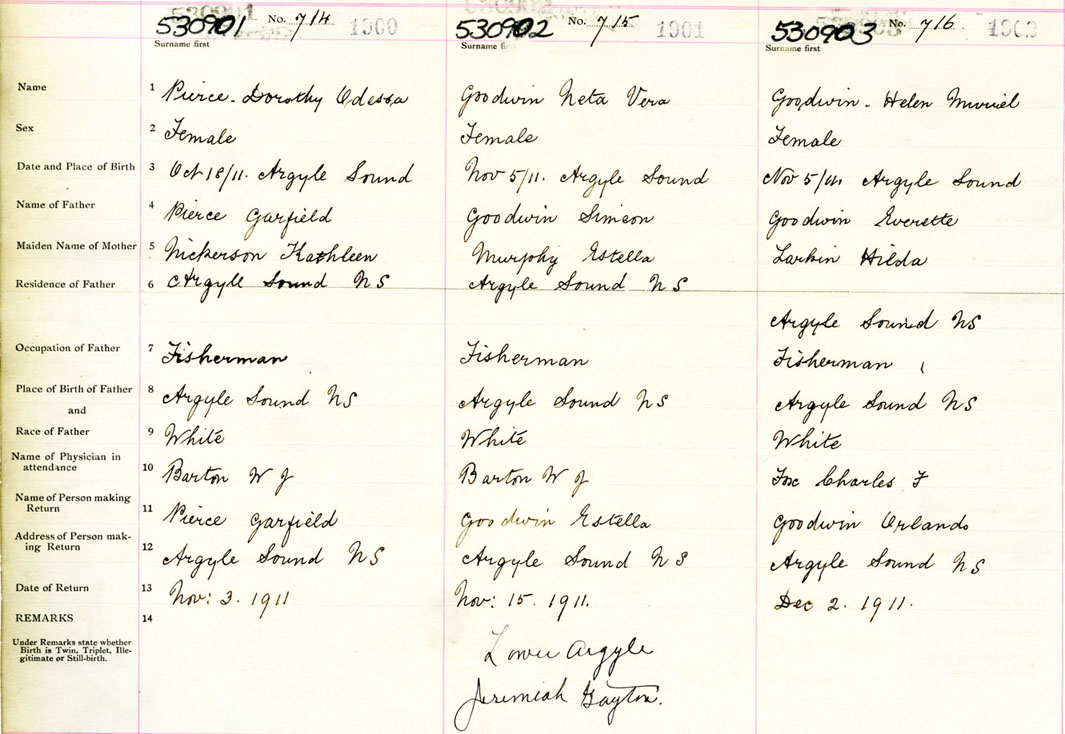 530901 No. 714 1900 530902 No. 715 1901 530903 No. 716
Surname first Surname first Surname first
Name 1 Pierce. Dorothy Odessa Goodwin Neta Vera Goodwin. Helen Muriel
Sex 2 Female Female Female
Date and Place of Birth 3 Oct 18/11. Argyle Sound Nov 5/11. Argyle Sound Nov Argyle Sound
Name of Father 4 Pierce Garfield Goodwin Simeon Goodwin Everette
Maiden Name of Mother 5 Nickerson Kathleen Murphy Estella Larkin Hilda
Residence of Father 6 Argyle Sound NS Argyle Sound NS
Argyle Sound NS
Occupation of Father 7 Fisherman Fisherman Fisherman
Place of Birth of Father 8 Argyle Sound NS Argyle Sound NS Argyle Sound NS
and
Race of Father 9 White White White
Name of Physician in
attendance 10 Barton W J Barton W J Fox Charles F
Name of Person making
Return 11 Pierce Garfield Goodwin Estella Goodwin Orlando
Address of Person mak-
ing Return 12 Argyle Sound NS Argyle Sound NS Argyle Sound NS
Date of Return 13 Nov: 3. 1911 Nov: 15. 1911. Dec 2. 1911.
REMARKS 14
Under Remarks state whether
Birth is Twin, Triplet, Ille-
gitimate or Still-birth.
Lower Argyle
Jeremiah Gayton.